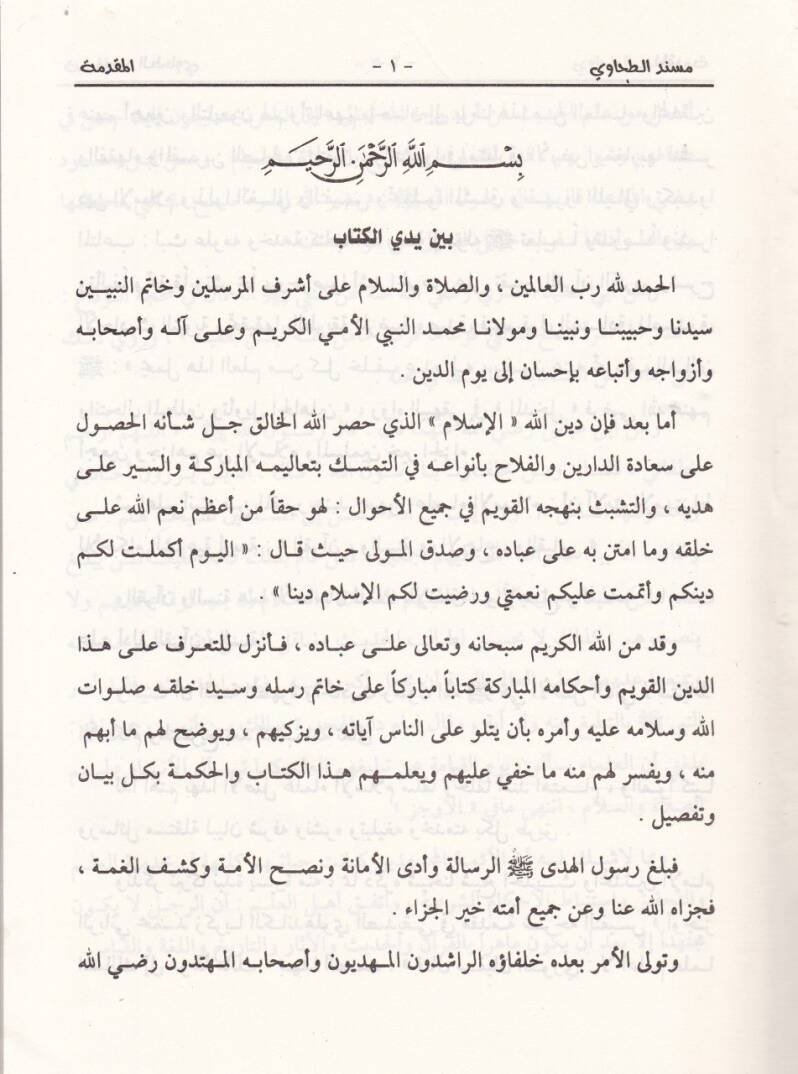 مسند الطحاوي - ١ - المقدمة
بِسْمِ اللَّهِ الرَّحْمَنِ الرَّحِيمِ
بين يدي الكتاب
الحمد لله رب العالمين ، والصلاة والسلام على أشرف المرسلين وخاتم النبيين
سيدنا وحبيبنا ونبينا ومولانا محمد النبي الأمي الكريم وعلى آله وأصحابه
وأزواجه وأتباعه بإحسان إلى يوم الدين .
أما بعد فإن دين الله « الإسلام » الذي حصر الله الخالق جل شأنه الحصول
على سعادة الدارين والفلاح بأنواعه في التمسك بتعاليمه المباركة والسير على
هديه ، والتشبث بنهجه القويم في جميع الأحوال : لهو حقاً من أعظم نعم الله على
خلقه وما امتن به على عباده ، وصدق المولى حيث قال : « اليوم أكملت لكم
دينكم وأتممت عليكم نعمتي ورضيت لكم الإسلام دينا » .
وقد من الله الكريم سبحانه وتعالى على عباده ، فأنزل للتعرف على هذا
الدين القويم وأحكامه المباركة كتاباً مباركاً على خاتم رسله وسيد خلقه صلوات
الله وسلامه عليه وأمره بأن يتلو على الناس آياته ، ويزكيهم ، ويوضح لهم ما أبهم
منه ، ويفسر لهم منه ما خفي عليهم ويعلمهم هذا الكتاب والحكمة بكل بيان
وتفصيل .
فبلغ رسول الهدى ﷺ الرسالة وأدى الأمانة ونصح الأمة وكشف الغمة ،
فجزاه الله عنا وعن جميع أمته خير الجزاء .
وتولى الأمر بعده خلفاؤه الراشدون المهديون وأصحابه المهتدون رضي الله